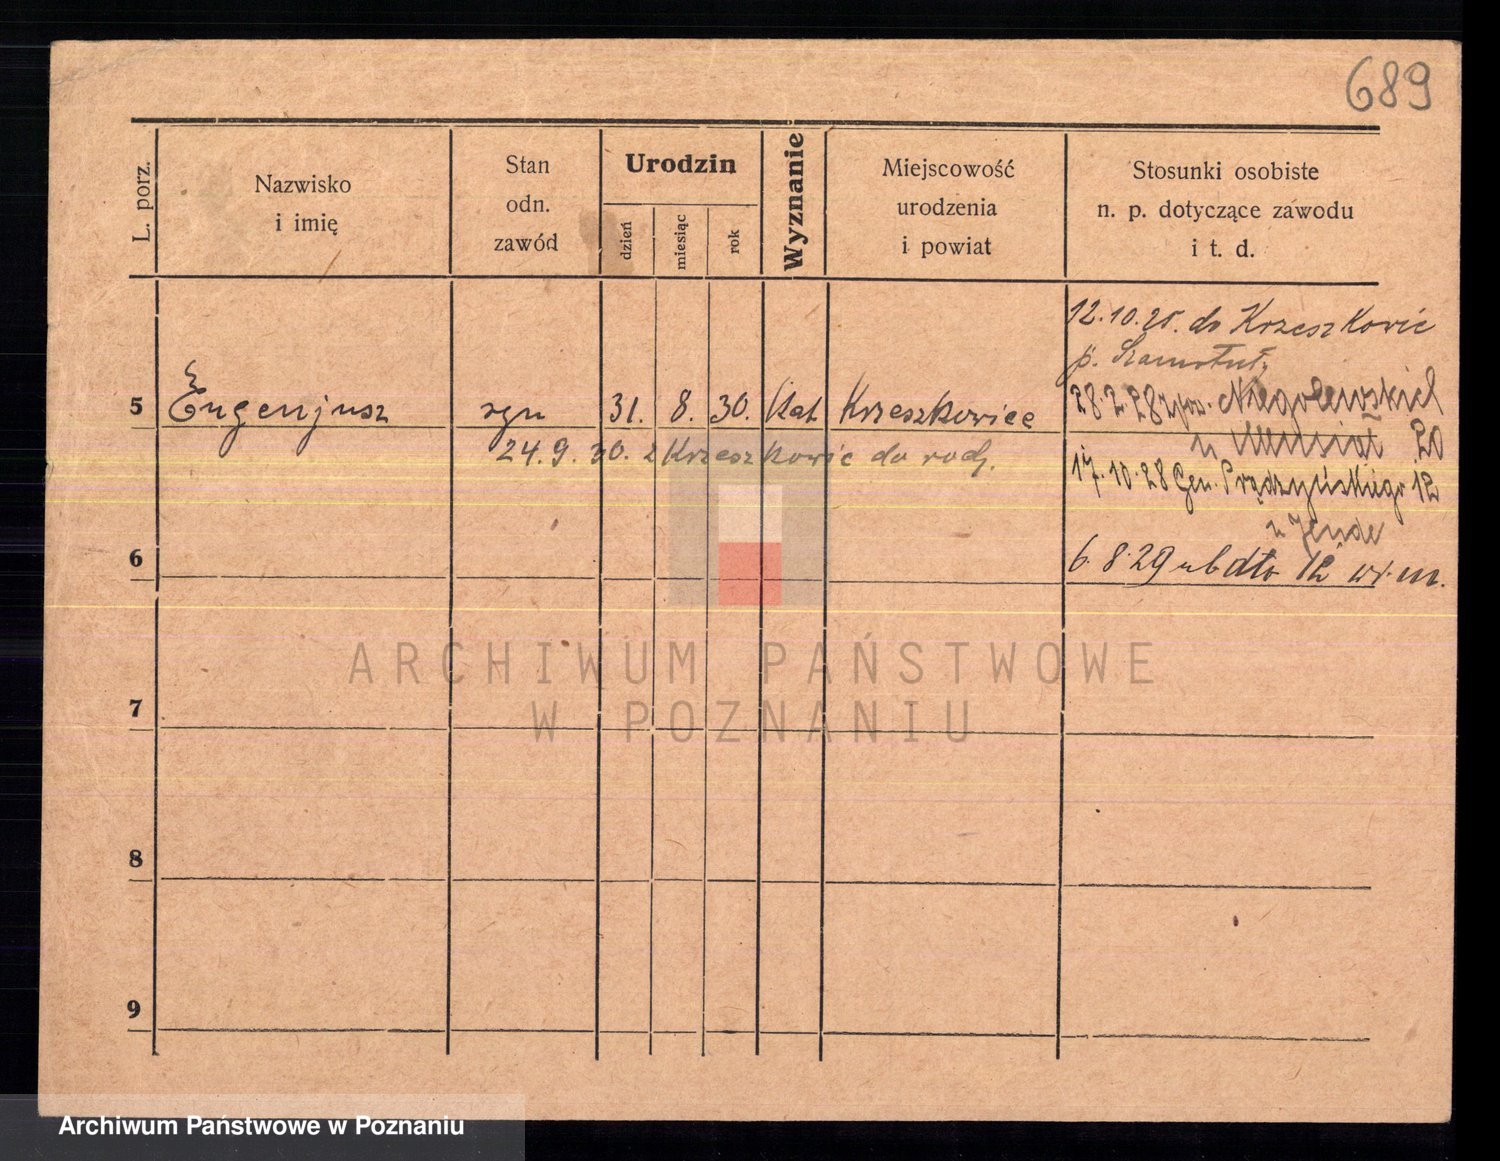 689
L. porz.
Nazwisko
i imię
Stan
odn.
zawód
Urodzin
dzień
miesiąc
rok
Wyznanie
Miejscowość
urodzenia
i powiat
Stosunki osobiste
n. p. dotyczące zawodu
i t. d.
12.10.25. do Krzeszkowic
p. Szamotuł,
5
Eugenjusz
syn
31.
8.
30.
Kat
Krzeszkowice
28.2.28 Niegolewskich
u 20
24.9.30. z Krzeszkowic do rodz.
17.10.28 Gen. Prądzyńskiego 12
u Jende
6
6.8.29 12 w. m.
7
8
9
ARCHIWUM PAŃSTWOWE
W POZNANIU
Archiwum Państwowe w Poznaniu